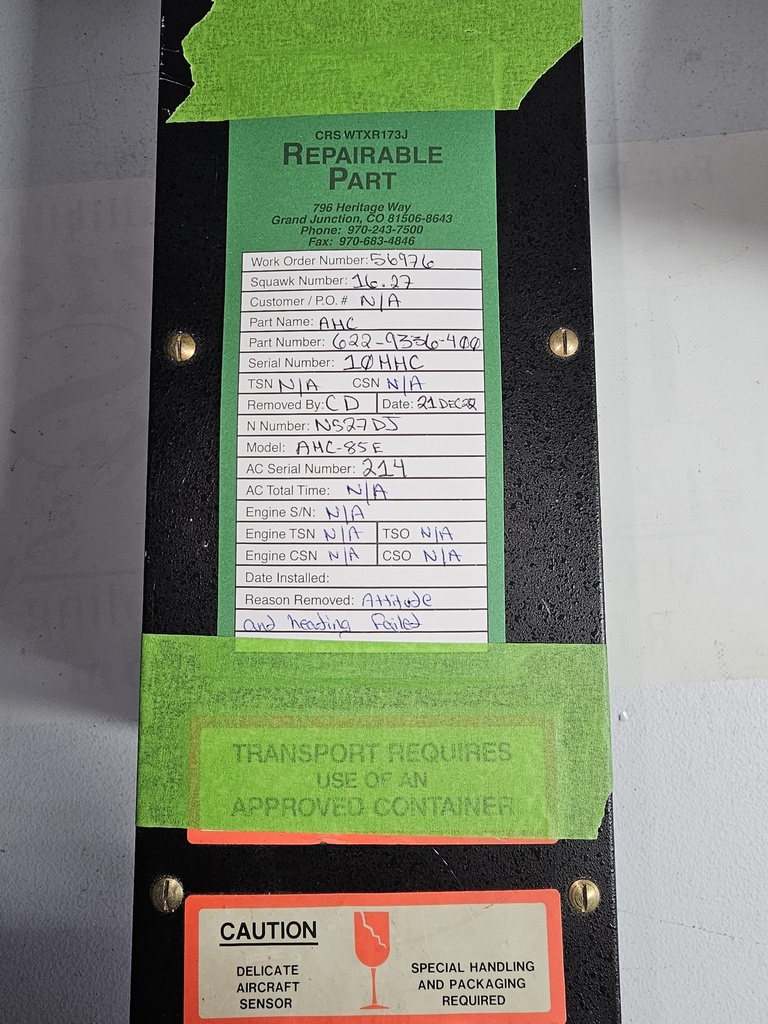 CRS WTXR173J
REPAIRABLE
PART
796 Heritage Way
Grand Junction, CO 81506-8643
Phone: 970-243-7500
Fax: 970-683-4846
Work Order Number: 56976
Squawk Number: 16.27
Customer / P.O. # N/A
Part Name: AHC
Part Number: 622-9336-400
Serial Number: 10HHC
TSN N/A CSN N/A
Removed By: CD Date: 21 DEC 22
N Number: N527DJ
Model: AHC-85E
AC Serial Number: 214
AC Total Time: N/A
Engine S/N: N/A
Engine TSN N/A TSO N/A
Engine CSN N/A CSO N/A
Date Installed:
Reason Removed: Attitude
and heading Failed
TRANSPORT REQUIRES
USE OF AN
APPROVED CONTAINER
CAUTION
DELICATE
AIRCRAFT
SENSOR
SPECIAL HANDLING
AND PACKAGING
REQUIRED